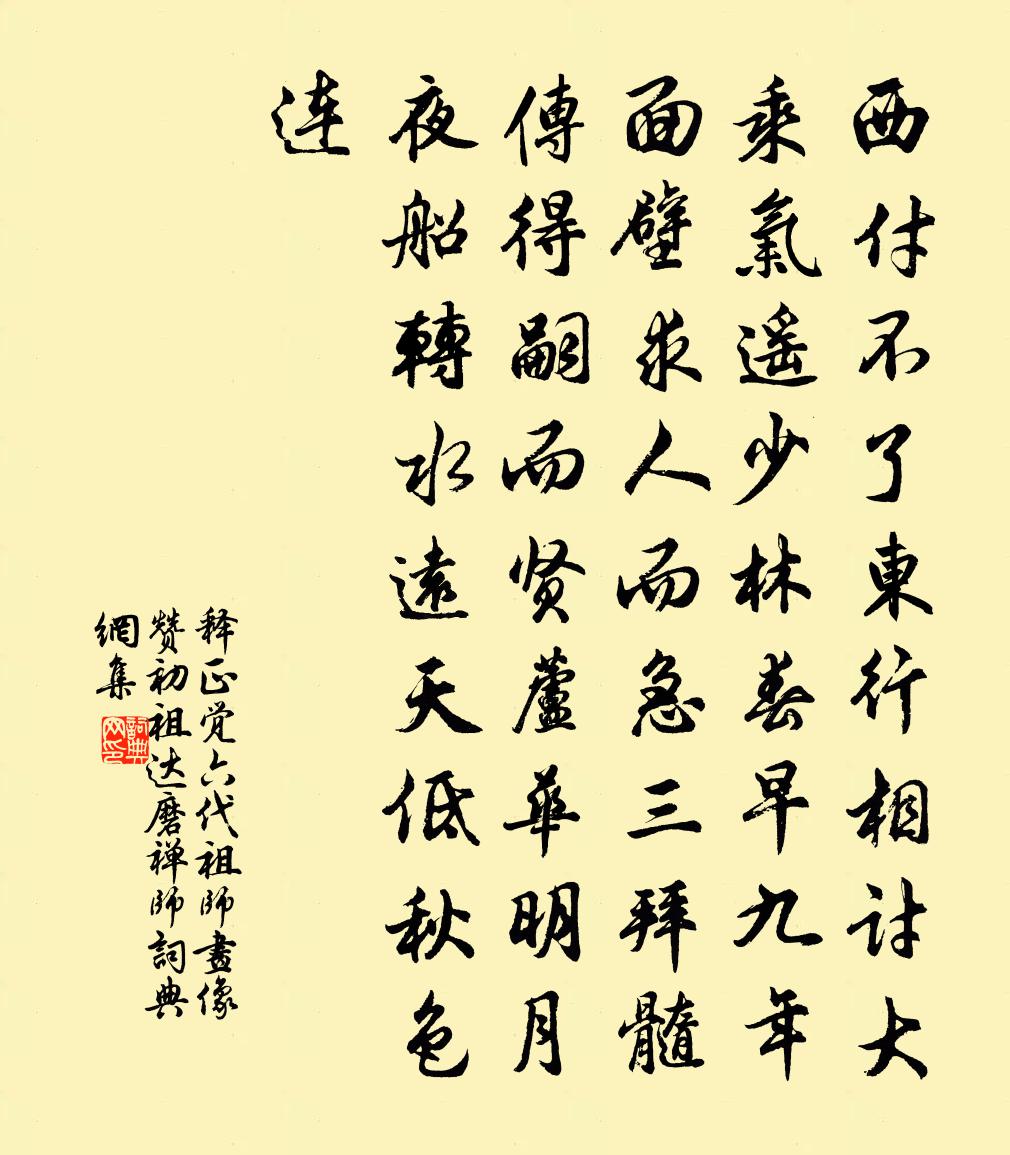 西付不了東行相討大
乘氣遥少林春早九年
面壁求人而急三拜髓
傳得嗣而贤蘆華明月
夜船轉水遠天低秋色
連
释正觉六代祖師畫像
赞初祖达磨禅師詞典
網集
詞典网印